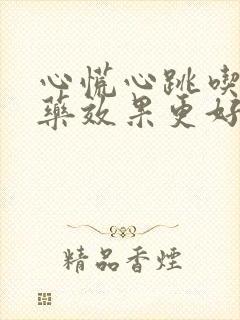 心慌心跳喫
藥效果更好
精品香煙